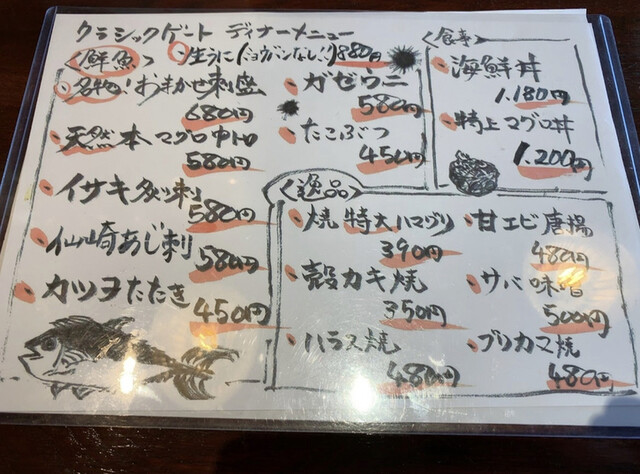 クラシックゲート ディナーメニュー
<鮮魚>
生うに(ミョウバンなし!)880円
名物!おまかせ刺盛
680円
天然本マグロ中トロ
580円
イサキ炙り刺
580円
仙崎あじ刺
580円
カツヲたたき
450円
ガゼウニ
580円
たこぶつ
450円
<食事>
海鮮丼
1.180円
特上マグロ丼
1.200円
<逸品>
焼 特大ハマグリ
390円
殻カキ焼
350円
ハラス焼
480円
甘エビ唐揚
480円
サバ味噌
500円
ブリカマ焼
480円